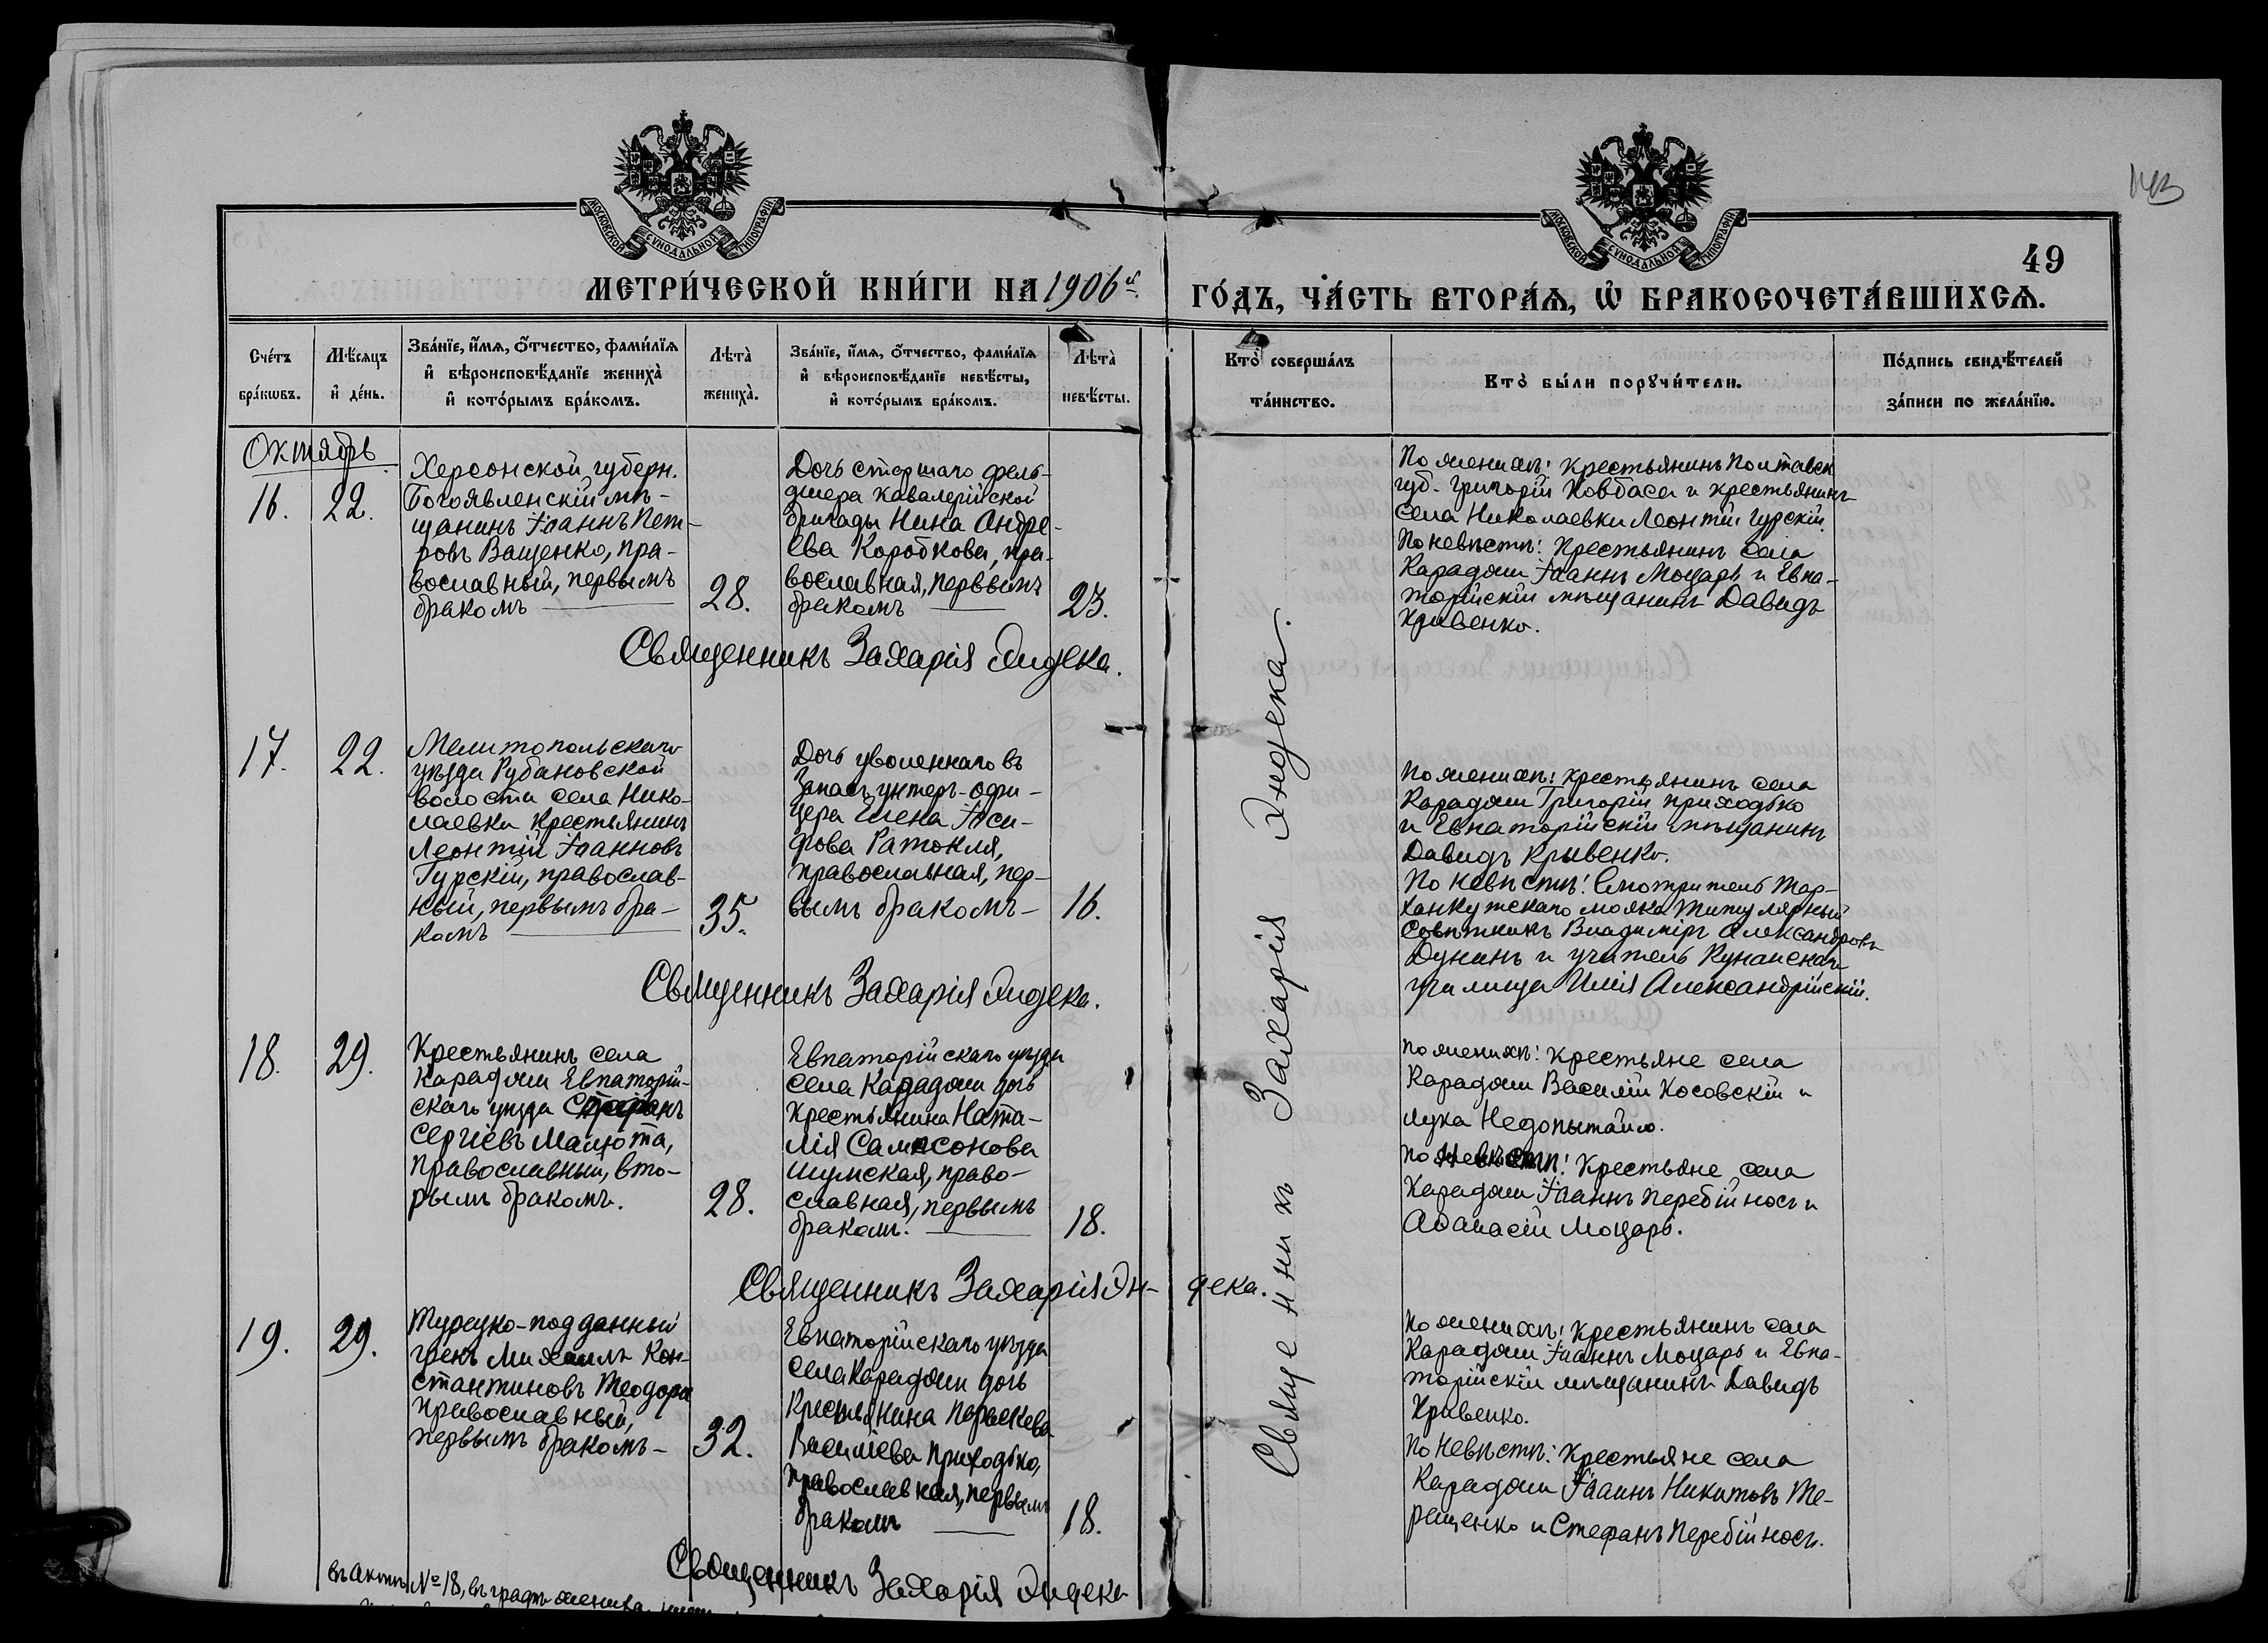 МОСКОВСКОЙ СѴНОДАЛЬНОЙ ТИПОГРАФІИ
МОСКОВСКОЙ СѴНОДАЛЬНОЙ ТИПОГРАФІИ
49
МЕТРИ́ЧЕСКОЙ КНИ́ГИ НА 1906й ГО́ДЪ, ЧА́СТЬ ВТОРА́Ѧ, Ѡ҆ БРАКОСОЧЕТА́ВШИХСѦ.
Сче́тъ
бра́кѡвъ.
Мѣ́сяцъ
и҆ де́нь.
Зва́нїе, и҆́мѧ, ѻ҆́тчество, фами́лїѧ
и҆ вѣроисповѣ́данїе жениха̀
и҆ кото́рымъ бра́комъ.
Лѣта̀
жениха̀.
Зва́нїе, и҆́мѧ, ѻ҆́тчество, фами́лїѧ
и҆ вѣроисповѣ́данїе невѣ́сты,
и҆ кото́рымъ бра́комъ.
Лѣта̀
невѣ́сты.
Кто̀ соверша́лъ
та́инство.
Кто̀ бы́ли порꙋчи́тели.
По́дпись свидѣ́телей
за́писи по жела́нїю.
Октябрь
16.
22.
Херсонской губерн.
Богоявленскій мѣ-
щанинъ Іоаннъ Пет-
ровъ Ващенко, пра-
вославный, первымъ
бракомъ
28.
Дочь старшаго фель-
дшера кавалерійской
бригады Нина Андре-
ева Коробкова, пра-
вославная, первымъ
бракомъ
23.
По женихѣ: Крестьянинъ Полтавск.
губ. Григорій Ковбаса и крестьянинъ
села Николаевки Леонтій Гурскій.
По невѣстѣ: Крестьянинъ села
Караджи Іоаннъ Моцарь и Евпа-
торійскій мѣщанинъ Давидъ
Кривенко.
Священникъ Захарія Эндека.
17.
22.
Мелитопольскаго
уѣзда Рубановской
волости села Нико-
лаевки крестьянинъ
Леонтій Іоанновъ
Гурскій, православ-
ный, первымъ бра-
комъ
35.
Дочь уволеннаго въ
Запасъ унтеръ-офи-
цера Елена Іоси-
фова Ратокля,
православная, пер-
вымъ бракомъ
16.
По женихѣ: крестьянинъ села
Караджи Григорій Приходько
и Евпаторійскій мѣщанинъ
Давидъ Крывенко.
По невѣстѣ: Смотритель Тар-
ханкутскаго маяка Титулярный
Совѣтникъ Владиміръ Александровъ
Дунинъ и учитель Кунанскаго
училища Илія Александрійскій.
Священникъ Захарія Эндека.
18.
29.
Крестьянинъ села
Караджи Евпаторій-
скаго уѣзда Стефанъ
Сергіевъ Малюта,
православный, вто-
рымъ бракомъ.
28.
Евпаторійскаго уѣзда
села Караджи дочь
крестьянина Ната-
лія Самсонова
Шумская, право-
славная, первымъ
бракомъ.
18.
По женихѣ: крестьяне села
Караджи Василій Косовскій и
Лука Недопытайло.
По невѣстѣ: Крестьяне села
Караджи Іоаннъ Перебійносъ и
Аѳанасій Моцарь.
Священникъ Захарія Эн-дека.
19.
29.
Турецко-подданный
грекъ Михаилъ Кон-
стантиновъ Теодори
православный,
первымъ бракомъ
32.
Евпаторійскаго уѣзда
села Караджи дочь
Крестьянина Параскева
Василіева Приходько,
православная, первымъ
бракомъ
18.
По женихѣ: Крестьянинъ села
Караджи Іоаннъ Моцарь и Евпа-
торійскій мѣщанинъ Давидъ
Кривенко.
По невѣстѣ: Крестьяне села
Караджи Іоаннъ Никитовъ Те-
рещенко и Стефанъ Перебійносъ.
Священникъ Захарія Эндека
Священникъ Захарія Эндека.
въ актѣ № 18, въ графѣ жениха